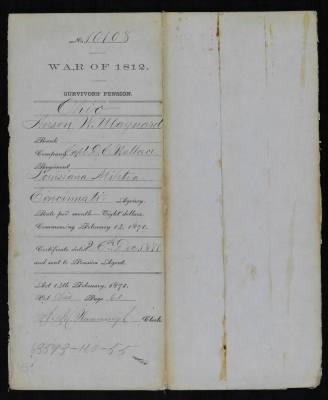 No. 10108
WAR OF 1812.
SURVIVORS' PENSION.
Ohio
Anson W. Maynard
Rank
Company Capt. Wallace
Regiment
Louisiana Militia
Cincinnati Agency.
Rate per month Eight dollars.
Commencing February 14, 1871.
Certificate dated
and sent to Pension Agent.
Act 14th February, 1871.
Vol. Page
Clerk.
63593-160-55